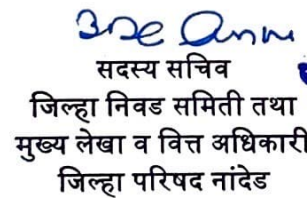 सदस्य सचिव
जिल्हा निवड समिती तथा
मुख्य लेखा व वित्त अधिकारी
जिल्हा परिषद नांदेड